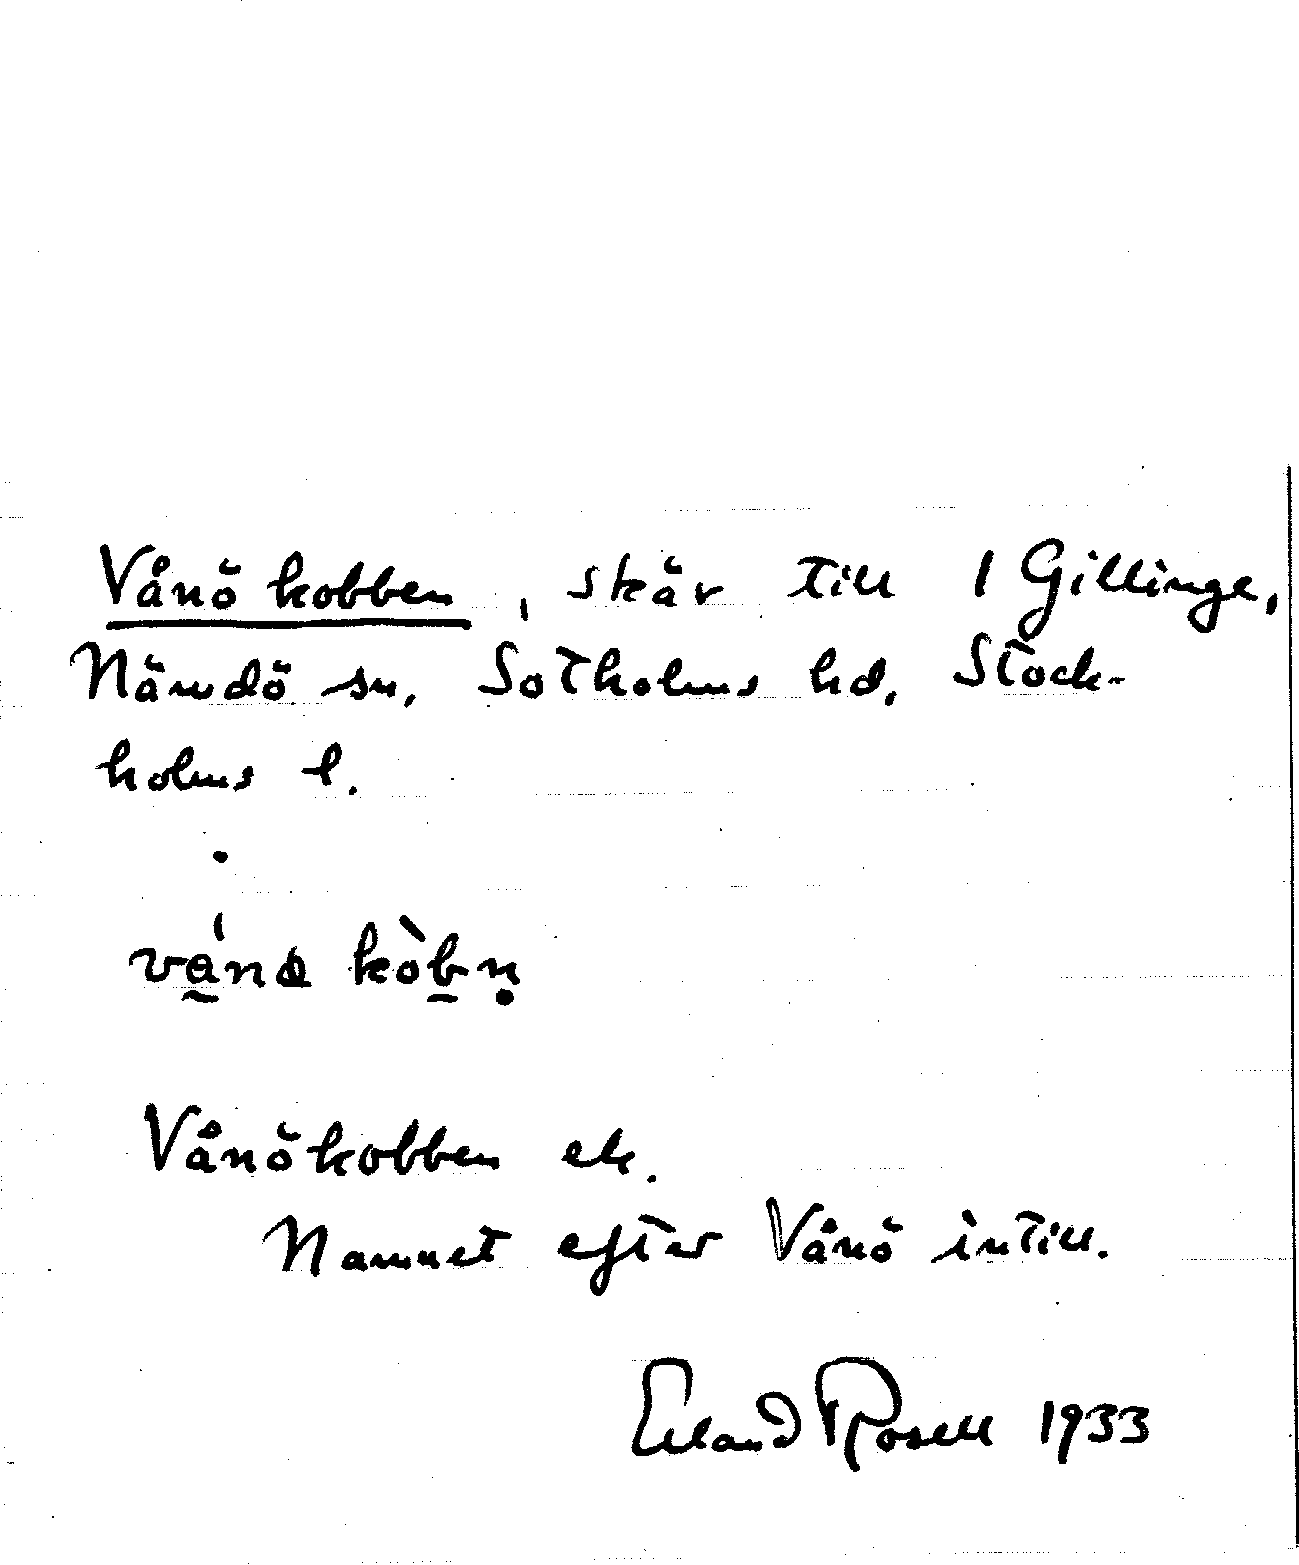 Vånö kobben, skär till 1 Gillinge,
Nämdö sn, Sotholms hd, Stock-
holms l.
Vånökobben ek.
Namnet efter Vånö intill.
Erland Rosell 1933